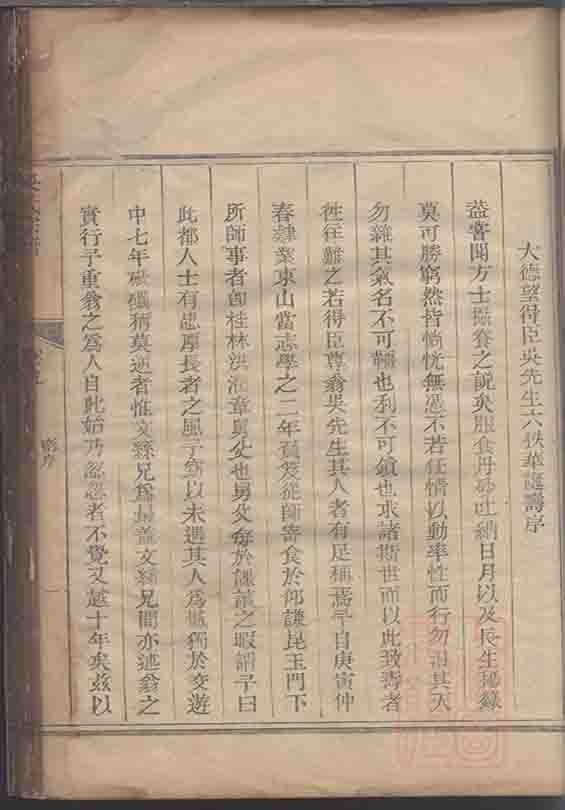 大德望得臣吳先生六秩華誕壽序
蓋嘗聞方士攝養之說矣服食丹砂吐納日月以及長生秘錄
莫可勝窮然皆惝恍無憑不若任情以動率性而行勿汩其天
勿雜其氣名不可韁也利不可鎖也求諸斯世而以此致壽者
往往難之若得臣尊翁吳先生其人者有足稱焉予自庚寅仲
春肄業東山當志學之二年負笈從師寄食於仰謙昆玉門下
所師事者卽桂林洪 章舅父也舅父每於 之暇謂予曰
此都人士有忠厚長者之風予竊以未遇其人為憾獨於交遊
中七年 稱莫逆者惟文 兄為最蓋文 兄間亦述翁之
實行予重翁之為人自此始乃忽忽者不覺又越十年矣茲以
壽序